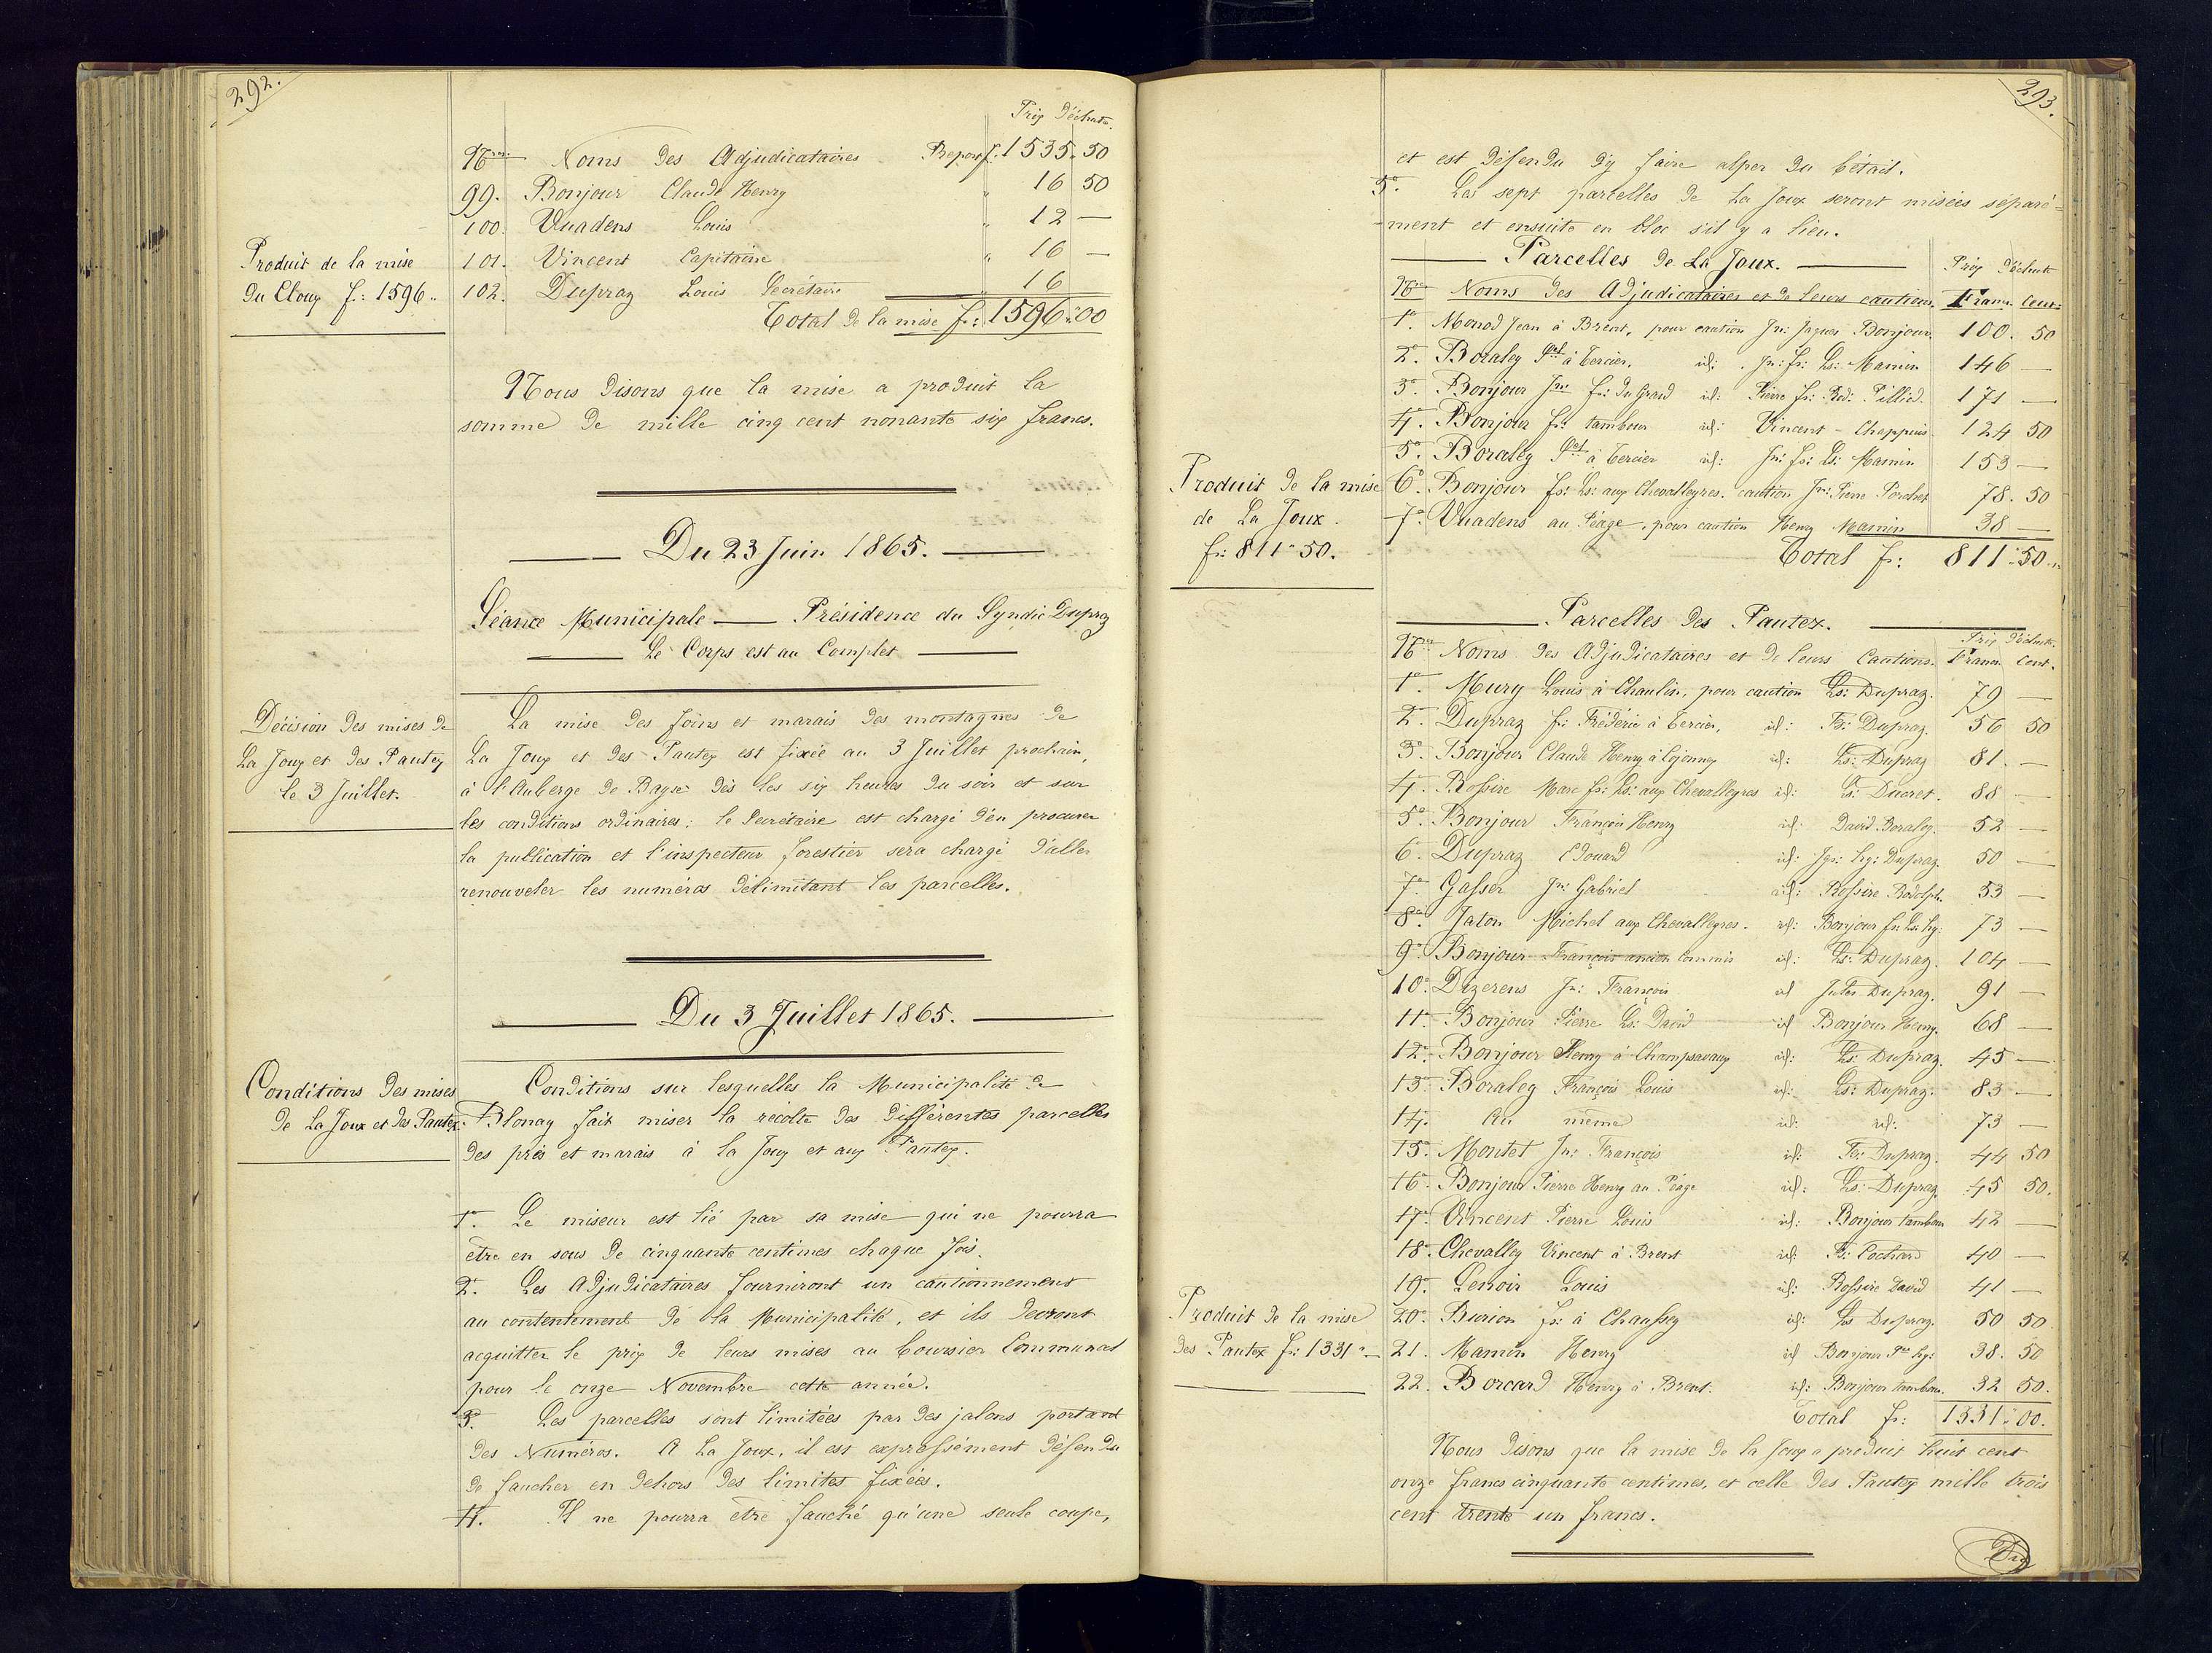 292.
Prix d'échute.
Nros Noms des Adjudicataires Report f. 1535. 50
99. Bonjour Claude Henry " 16 50
100. Vuadens Louis " 12 —
101. Vincent Capitaine " 16 —
102. Dupraz Louis Secrétaire " 16
Total de la mise fr: 1596 " 00
Produit de la mise
du Cloux fr: 1596 "
Nous disons que la mise a produit la
somme de mille cinq cent nonante six francs.
Du 23 Juin 1865.
Séance Municipale — Présidence du Syndic Dupraz
Le Corps est au Complet
Décision des mises de
La Joux et des Pautex
le 3 Juillet.
La mise des foins et marais des montagnes de
La Joux et des Pautex est fixée au 3 Juillet prochain,
à l'Auberge de Bague dès les six heures du soir et sur
les conditions ordinaires; le Secrétaire est chargé d'en procurer
la publication et l'inspecteur forestier sera chargé d'aller
renouveler les numéros délimitant les parcelles.
Du 3 Juillet 1865.
Conditions des mises
de La Joux et des Pautex.
Conditions sur lesquelles la Municipalité de
Blonay fait miser la récolte des différentes parcelles
des prés et marais à la Joux et aux Pautex.
1o. Le miseur est lié par sa mise qui ne pourra
être en sous de cinquante centimes chaque fois.
2o. Les Adjudicataires fourniront un cautionnement
au contentement de la Municipalité, et ils devront
acquitter le prix de leurs mises au boursier Communal
pour le onze Novembre cette année.
3. Les parcelles sont limitées par des jalons portant
des Numéros. A La Joux, il est expressément défendu
de faucher en dehors des limites fixées.
4. Il ne pourra être fauché qu'une seule coupe,
293.
et est défendu d'y faire alper du bétail.
5o. Les sept parcelles de La Joux seront misées séparé-
-ment et ensuite en bloc s'il y a lieu.
Parcelles de La Joux.
Prix d'échute
Nros Noms des Adjudicataires et de leurs cautions. Francs Cent:
1o. Monod Jean à Brent, pour caution Jn: Jaques Bonjour 100. 50
2o. Boraley à Tercier, id: Jn: fs: Ls: Mamin 146 —
3o. Bonjour Jn: fs: du Grand id: Pierre fs: Rod: Pilliod. 171 —
4o. Bonjour fs: tambour id: Vincent - Chappuis 124 50
5o. Boraley à Tercier id: Jn: fs: Ls: Mamin 153 —
6o. Bonjour fs: Ls: aux Chevalleyres. caution Jn: Pierre Porchet 78. 50
7o. Vuadens au Péage, pour caution Henry Mamin 38 —
Total fr: 811 " 50.
Produit de la mise
de La Joux.
fr: 811 " 50.
Parcelles des Pautex.
Prix d'échute.
Nros Noms des Adjudicataires et de leurs Cautions. Francs Cent.
1o. Mury Louis à Chaulin, pour caution Ls: Dupraz. 79 —
2o. Dupraz fs: Frédéric à Tercier, id: Fs: Dupraz. 56 50
3o. Bonjour Claude Henry à Cojonnex id: Ls: Dupraz 81. —
4. Rossire Marc fs: Ls: aux Chevalleyres id: Ls: Ducret. 88 —
5o. Bonjour François Henry id: David Boraley. 52 —
6. Dupraz Edouard id: Jqs: hy: Dupraz. 50 —
7o. Gasser Jn: Gabriel id: Rossire Rodolph. 53 —
8o. Jaton Michel aux Chevalleyres. id: Bonjour fs: Ls: hy: 73 —
9o. Bonjour François ancien Commis id: Ls: Dupraz. 104 —
10o. Dizerens Jn: François id Jules Dupraz. 91 —
11. Bonjour Pierre Ls: David id Bonjour Henry. 68 —
12o. Bonjour Henry à Champsavaux id: Ls: Dupraz. 45 —
13o. Boraley François Louis id: Ls: Dupraz. 83 —
14. Au même id: id: 73 —
15o. Montet Jn: François id: Fs: Dupraz. 44 50
16o. Bonjour Pierre Henry au Péage id: Ls: Dupraz. 45 50.
17o. Vincent Pierre Louis id: Bonjour tambour 42 —
18o. Chevalley Vincent à Brent id: Fs: Cochard 40 —
19o. Lenoir Louis id: Rossire David 41 —
20o. Burion fs: à Chaussey id: Ls Dupraz. 50 50
21. Mamin Henry id Bonjour Pre hy: 38. 50
22. Borcard Henry à Brent. id: Bonjour tambour. 32 50.
Total fr: 1331 " 00.
Produit de la mise
des Pautex fr: 1331 " —
Nous disons que la mise de la Joux a produit huit cent
onze francs cinquante centimes, et celle des Pautex mille trois
cent trente un francs.